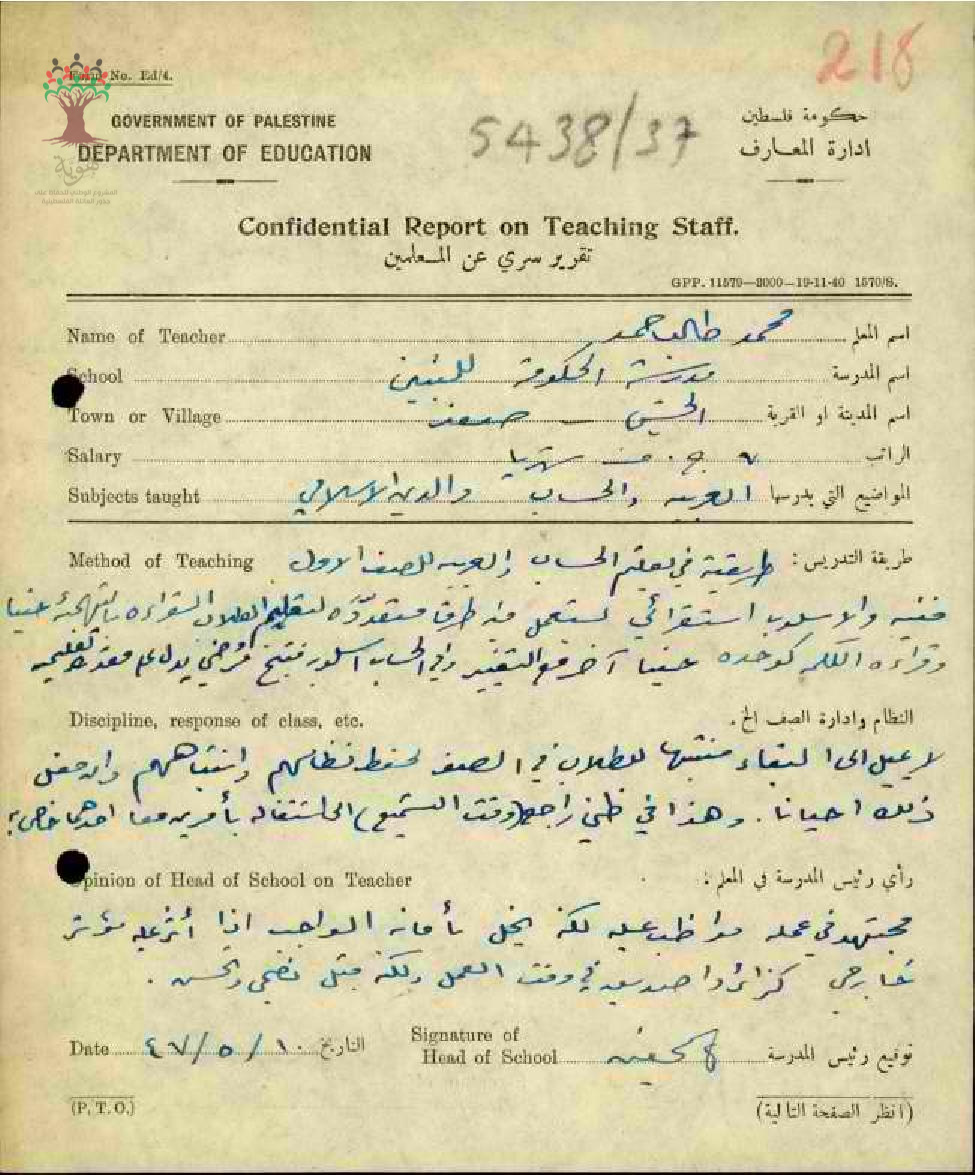 218
Form No. Ed/4.
GOVERNMENT OF PALESTINE
DEPARTMENT OF EDUCATION
5438/37
حكومة فلسطين
ادارة المعارف
هوية
المشروع الوطني للحفاظ على
جذور العائلة الفلسطينية
Confidential Report on Teaching Staff.
تقرير سري عن المعلمين
GPP. 11579—3000—19-11-40 1570/S.
Name of Teacher محمد طالب حمد اسم المعلم
School مدرسة الحكومة للبنين اسم المدرسة
Town or Village صفد اسم المدينة او القرية
Salary ٧ ج. ف الراتب
Subjects taught العربية والحساب والدين الاسلامي المواضيع التي يدرسها
Method of Teaching طريقة التدريس: طريقته في تعليم الحساب والعربية للصف الاول
فنيه والاسلوب استقرائي يستعمل فيه طرق متعدده لتعليم الطلاب القراءه بالتهجئة حينا
وقراءه الكلمه كوحده حينا آخر مع التغيير وفي الحساب اسلوبه يدل على مقدرته تعليميه
Discipline, response of class, etc. النظام وادارة الصف الخ.
لا يميل الى البقاء منتبها للطلاب في الصف لحفظ نظامهم وانتباههم وان حفظ
ذلك احيانا. وهذا في ظني راجع (وقت التسميع) الى اشتغاله بأمرين معا احدهما خاص به
Opinion of Head of School on Teacher رأي رئيس المدرسة في المعلم:
مجتهد في عمله مواظب عليه لكنه يخل بأمانة الواجب اذا أثر عليه مؤثر
خارجي كزائر او صديق في وقت العمل ولكنه يقبل نصحي وحسن.
Date ١٠/٥/٤٧ التاريخ Signature of
Head of School توقيع رئيس المدرسة
(P. T. O.) (انظر الصفحة التالية)